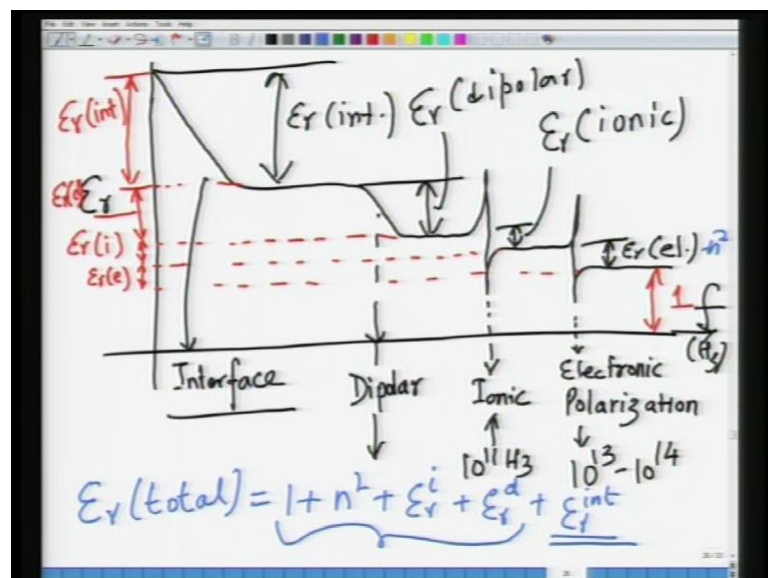 File Edit View Insert Actions Tools Help
εr(int)
εr(int.)
εr(dipolar)
εr(ionic)
εr
εr(i)
εr(e)
εr(el.)-n²
1
f
(Hz)
Interface
Dipolar
Ionic
Electronic
Polarization
10¹¹ Hz
10¹³-10¹⁴
εr(total) = 1 + n² + εrⁱ + εrᵈ + εrⁱⁿᵗ